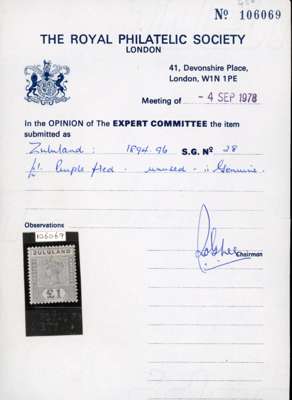 Nº 106069
THE ROYAL PHILATELIC SOCIETY
LONDON
41, Devonshire Place,
London, W1N 1PE
Meeting of - 4 SEP 1978
In the OPINION of The EXPERT COMMITTEE the item
submitted as
Zululand: 1894.96 S.G. Nº 28
£1. Purple & red - unused - is Genuine.
Chairman
Observations
106069
ZULULAND
£1